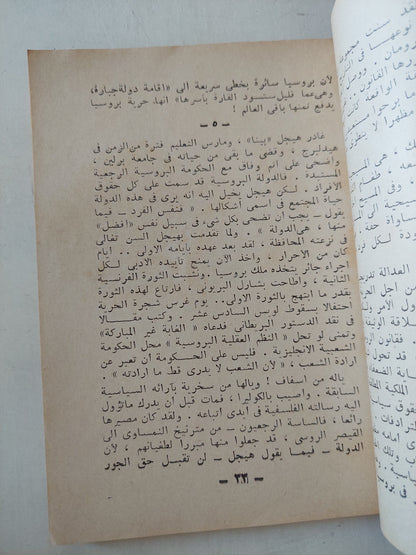 لأن بروسيا سائرة بخطى سريعة الى «اقامة دولة جبارة،
وهى عما قليل ستسود القارة بأسرها» انها، حرية بروسيا
يدفع ثمنها باقى العالم !
— ٥ —
غادر هيجل «يينا» ، ومارس التعليم فترة من الزمن فى
هيدلبرج ، وقضى ما بقى من حياته فى جامعة برلين ،
وأضحى على أتم وفاق مع الحكومة البروسية الرجعية
المستبدة . فالدولة البروسية قد سمت على كل حقوق
الأفراد . لكن هيجل يُخيل اليه انه يرى فى هذه الدولة
حياة المجتمع في أسمى أشكالها . « فنفس الفرد — فيما
يقول — يجب ان تضحى بكل شىء فى سبيل نفس «أفضل»
منها ، هى الدولة » . ولما تقدمت بهيجل السن تغالى
فى نزعته المحافظة ، لقد بعد عهده بأيامه الاولى .. أيام
كان من الأحرار ، وأخذ الآن يمنح تأييده الأدبى لكل
اجراء جائر يتخذه ملك بروسيا . ونشبت الثورة الفرنسية
الثانية ، وأطاحت بشارل البربونى ، فارتاع لهذه الثورة
بقدر ما ابتهج بالثورة الاولى.. يوم غرس شجرة الحرية
احتفالا بسقوط لويس السادس عشر . وكتب مقالا
فى نقد الدستور البريطانى فدعاه « الغابة غير المباركة»
وتمنى لو تحل « النظم العقلية البروسية » محل الحكومة
الشعبية الانجليزية . فليس على الحكومة أن تعبر عن
ارادة الشعب ، « لأن الشعب لا يدرى قط ما ارادته » .
ياله من اسفاف ! ويالها من سخرية بآرائه السياسية
السابقة . وأصيب بالكوليرا ، فمات قبل أن يدرك ماتؤول
اليه رسالته الفلسفية فى أيدى أتباعه . ولقد كان مصيرها
رائعا ، فالساسة الرجعيون — من مترنيخ النمساوى الى
القيصر الروسى ، قد جعلوا منها مبررا لطغيانهم ، لأن
الدولة — فيما يقول هيجل — لن تقبل حق الجور
— ٣٣ —